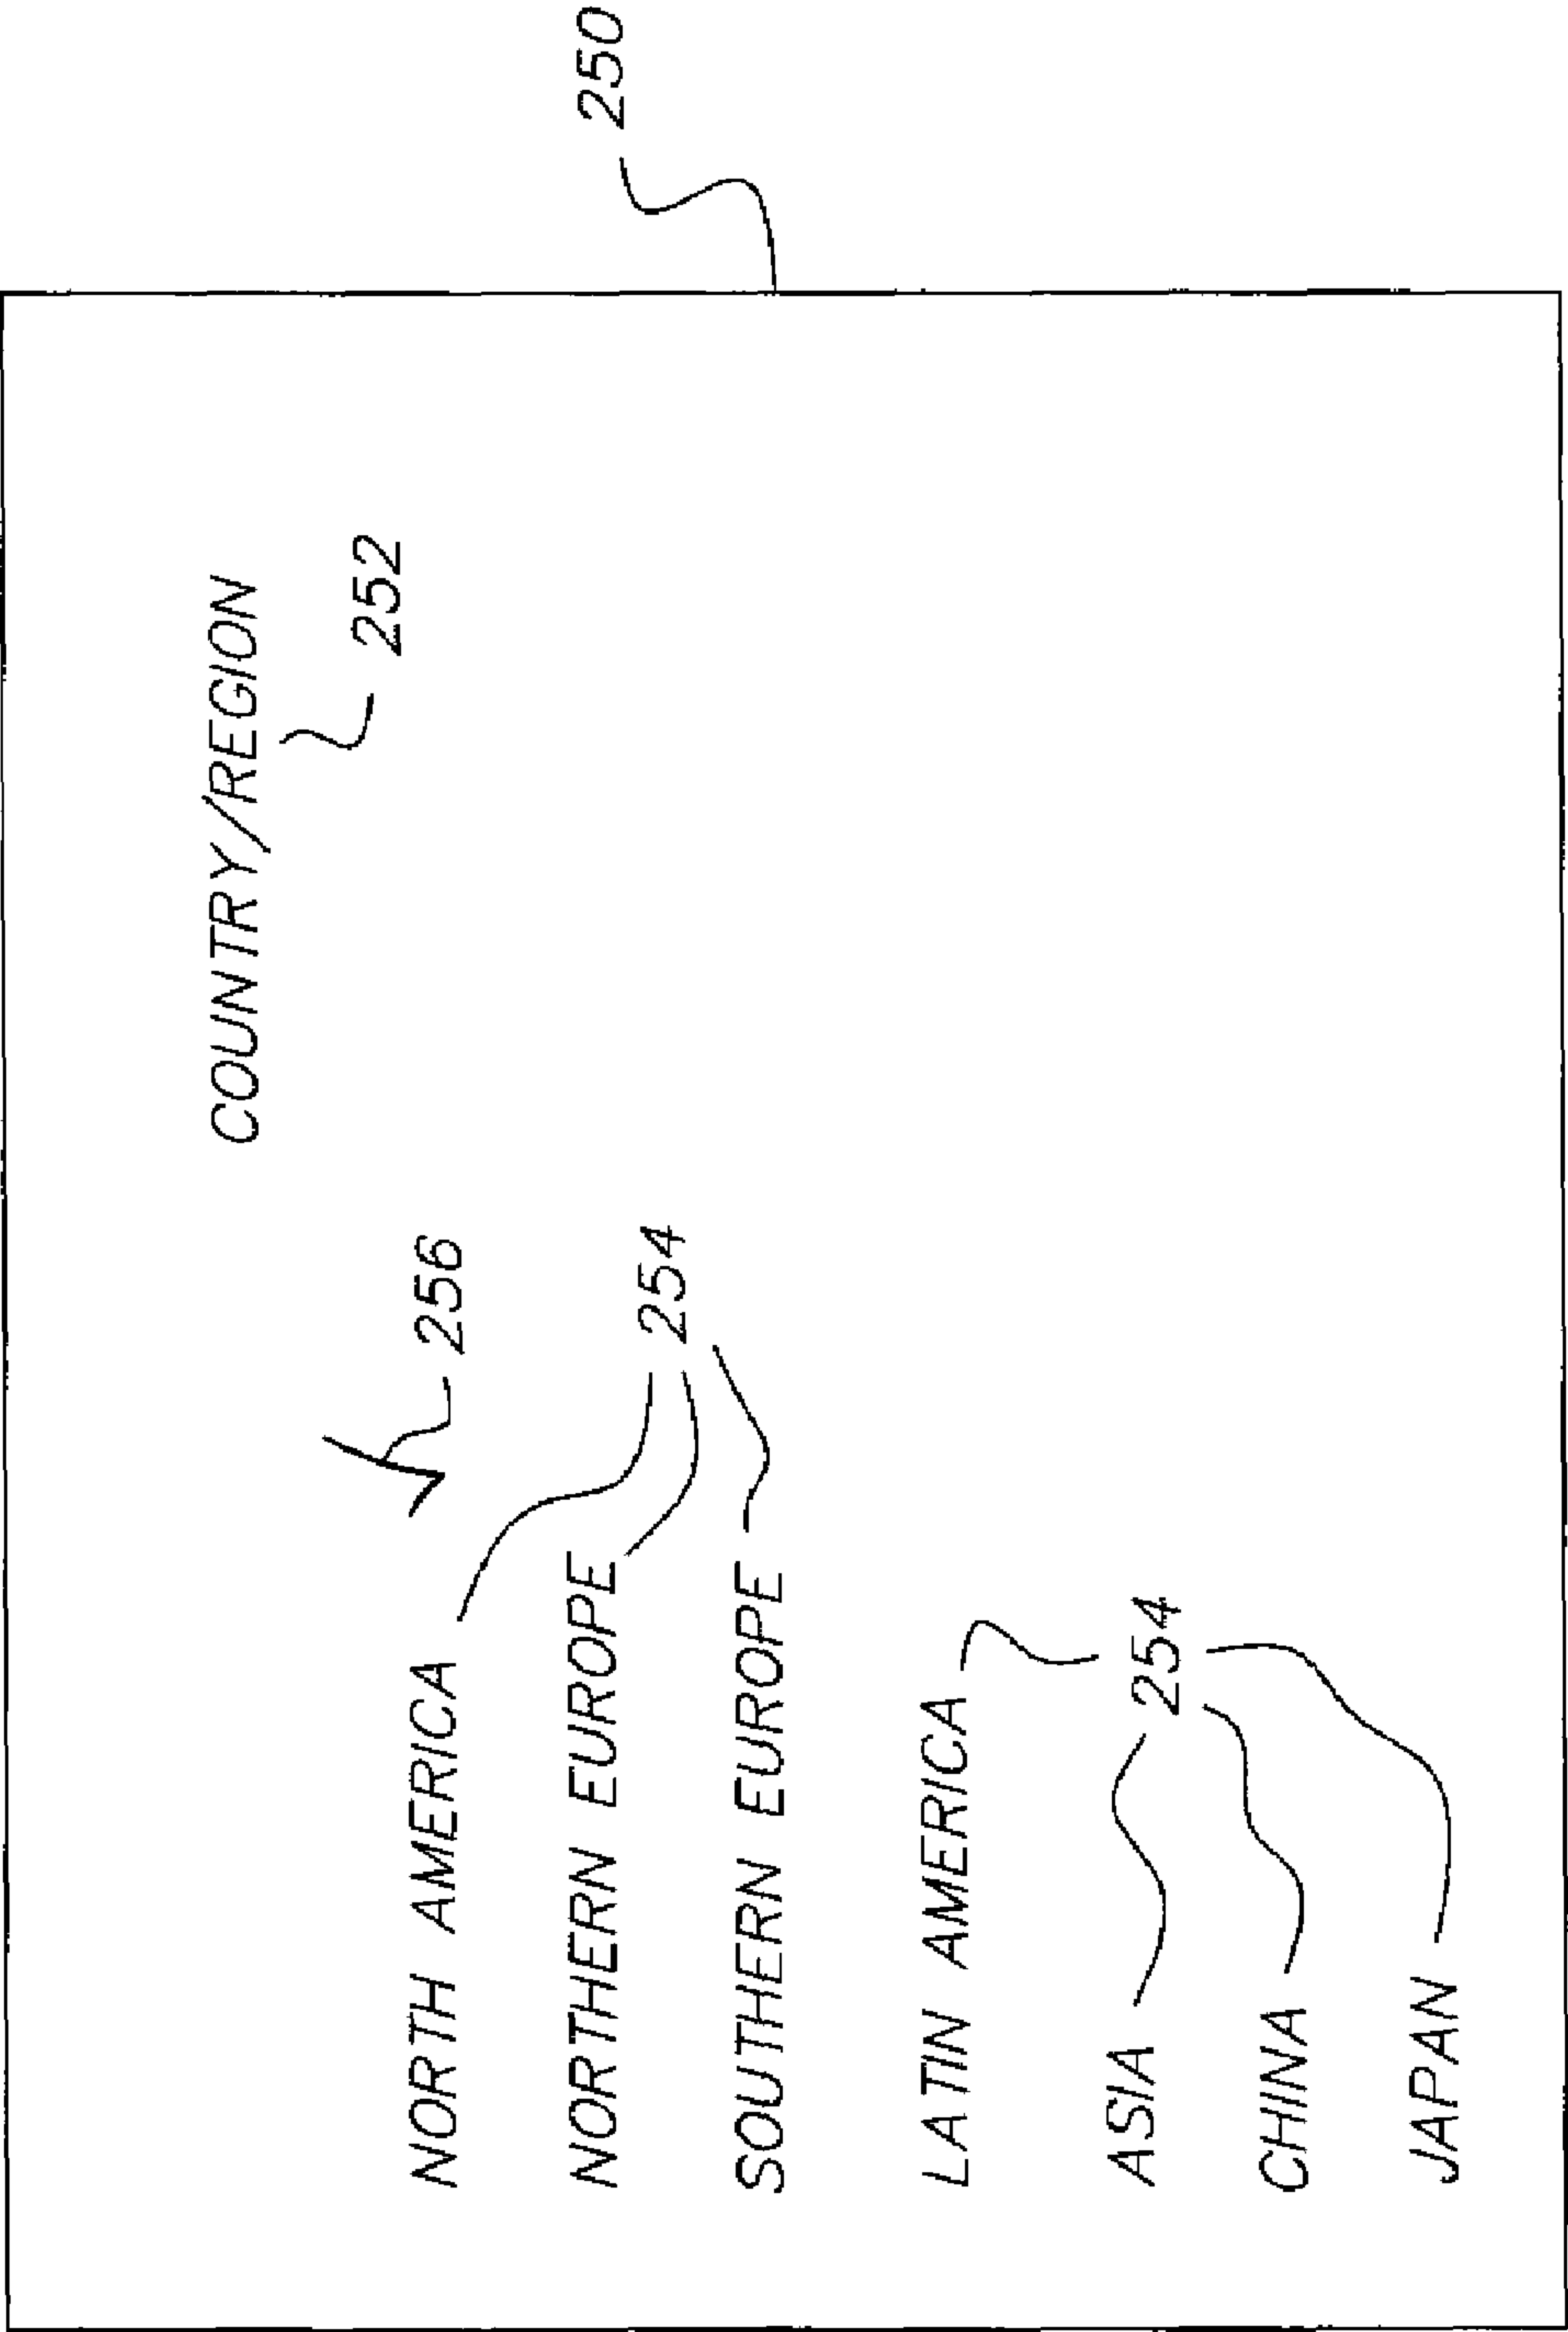 COUNTRY/REGION
252
250
NORTH AMERICA
256
NORTHERN EUROPE
254
SOUTHERN EUROPE
LATIN AMERICA
ASIA
254
CHINA
JAPAN